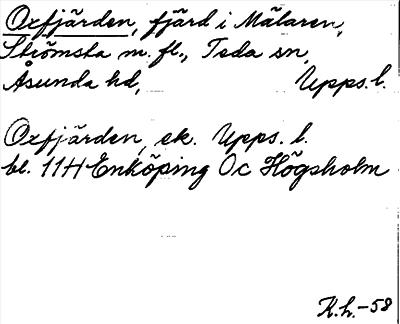 Oxfjärden, fjärd i Mälaren,
Strömsta m. fl., Teda sn,
Åsunda hd, Upps. l.
Oxfjärden, ek. Upps. l.
bl. 11H Enköping Oc Högsholm
K.h.-58